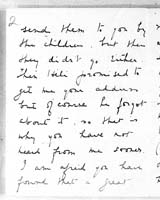 2
send them to you by
the children. but then
they didn't go either.
Then Heli promised to
get me your address
but of course he forgot
about it. so that is
why you have not
heard from me sooner.
I am afraid you have
found that a great